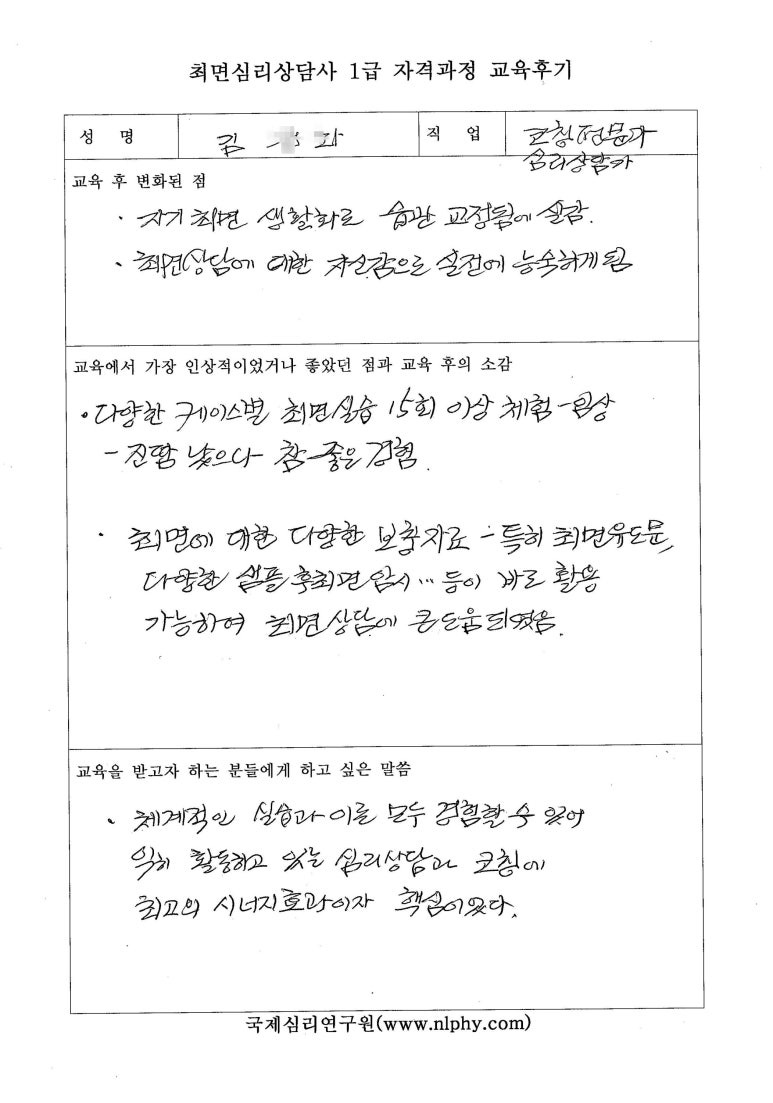 최면심리상담사 1급 자격과정 교육후기
성 명 김 직 업 코칭전문가
심리상담가
교육 후 변화된 점
· 자기최면 생활화로 습관 교정됨에 실감.
· 최면상담에 대한 자신감으로 실전에 능숙하게 됨
교육에서 가장 인상적이었거나 좋았던 점과 교육 후의 소감
· 다양한 케이스별 최면실습 15회 이상 체험-임상
- 진땀 났으나 참 좋은 경험.
· 최면에 대한 다양한 보충자료 - 특히 최면유도문,
다양한 샘플 후최면암시… 등이 바로 활용
가능하여 최면상담에 큰 도움되었음.
교육을 받고자 하는 분들에게 하고 싶은 말씀
· 체계적인 실습과 이론 모두 경험할 수 있어
익히 활동하고 있는 심리상담과 코칭에
최고의 시너지효과이자 핵심이었다.
국제심리연구원(www.nlphy.com)